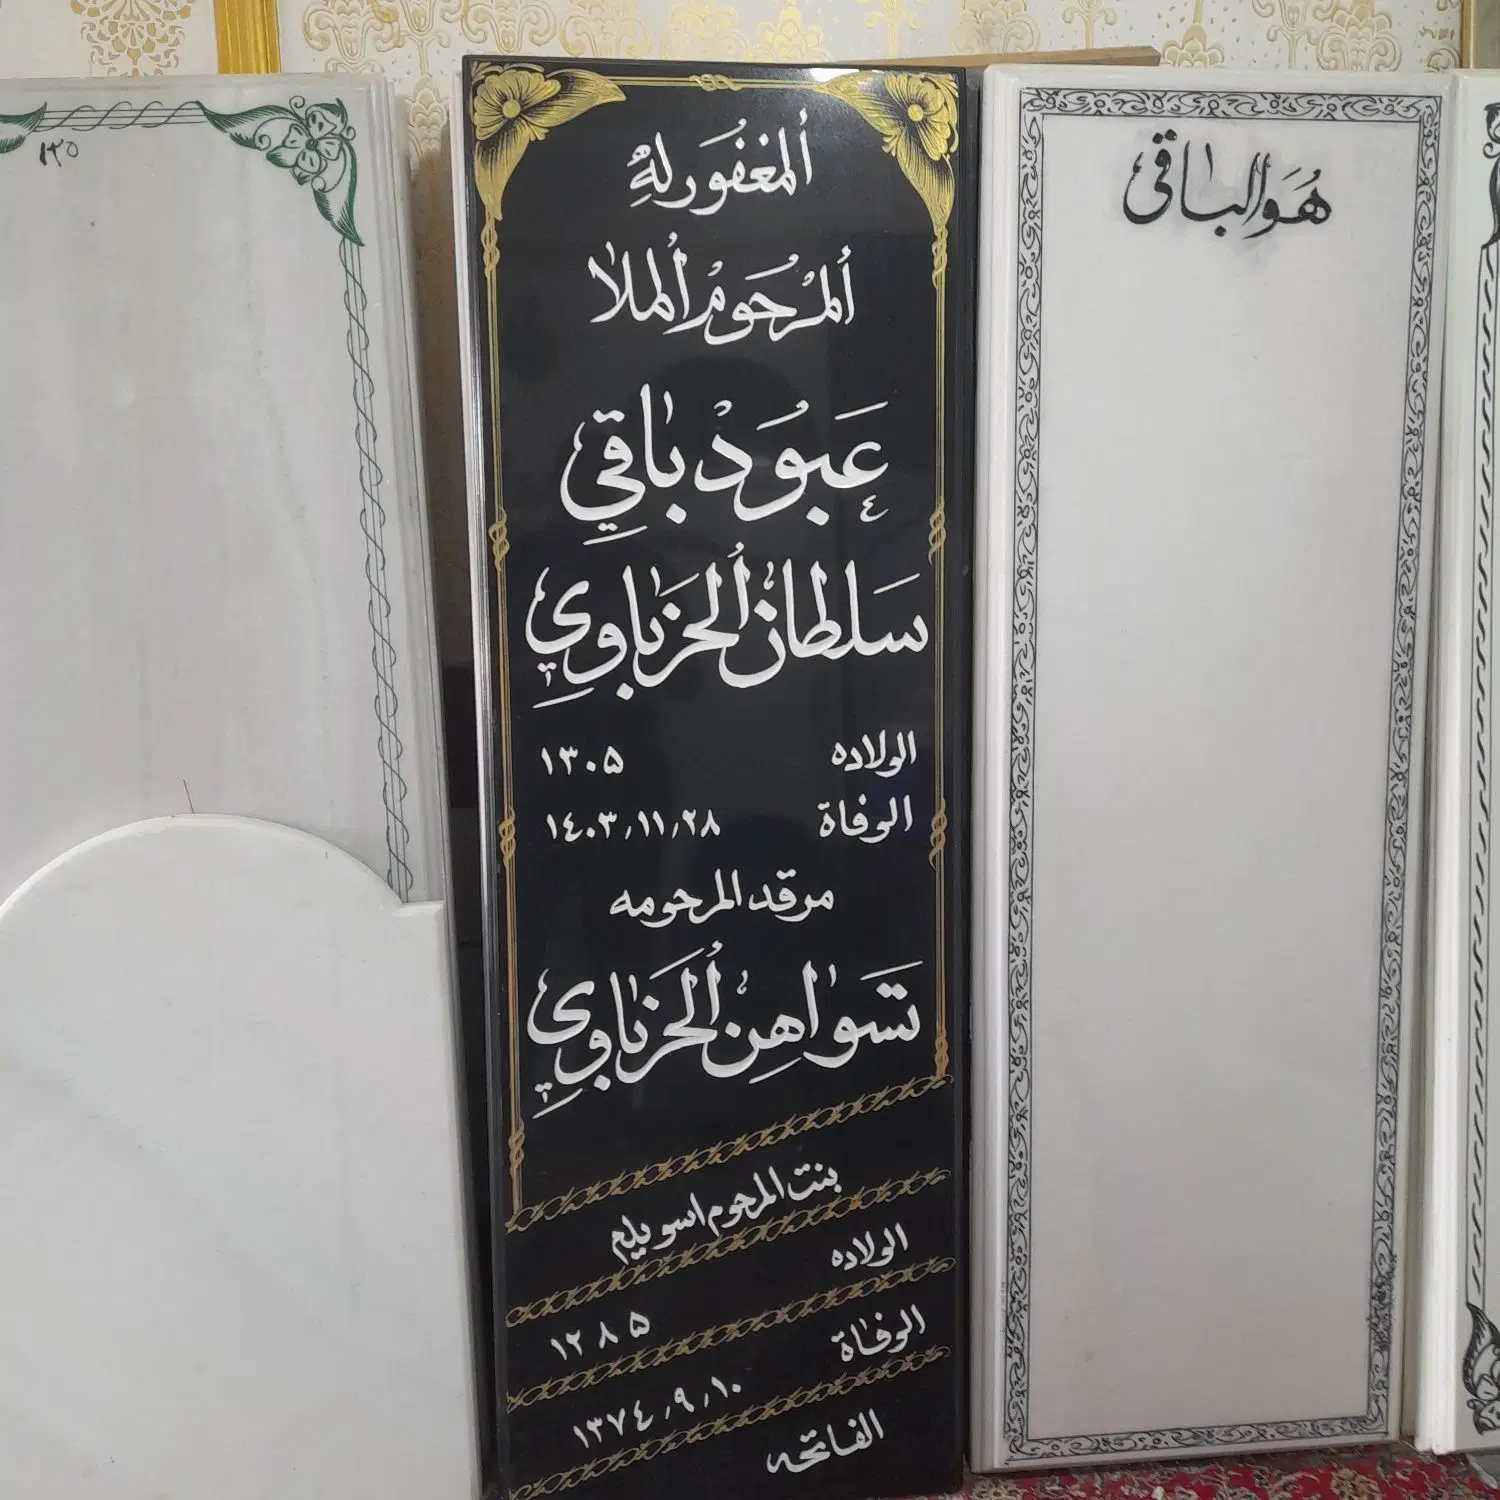 ١٢٥
ٱلمغفُور لهُ
ٱلمرحُومْ ٱلملا
عَبُودْ باقي
سلطان ٱلحزباوي
الولاده ١٣٠۵
الوفاة ١٤٠٣٫١١٫٢٨
مرقد المرحومه
تسواهن ٱلحزباوي
بنت المرحوم اسويلم
الولاده ١٢٨۵
الوفاة ١٣٧٤٫٩٫١٠
الفاتحه
هُوَ الباقی